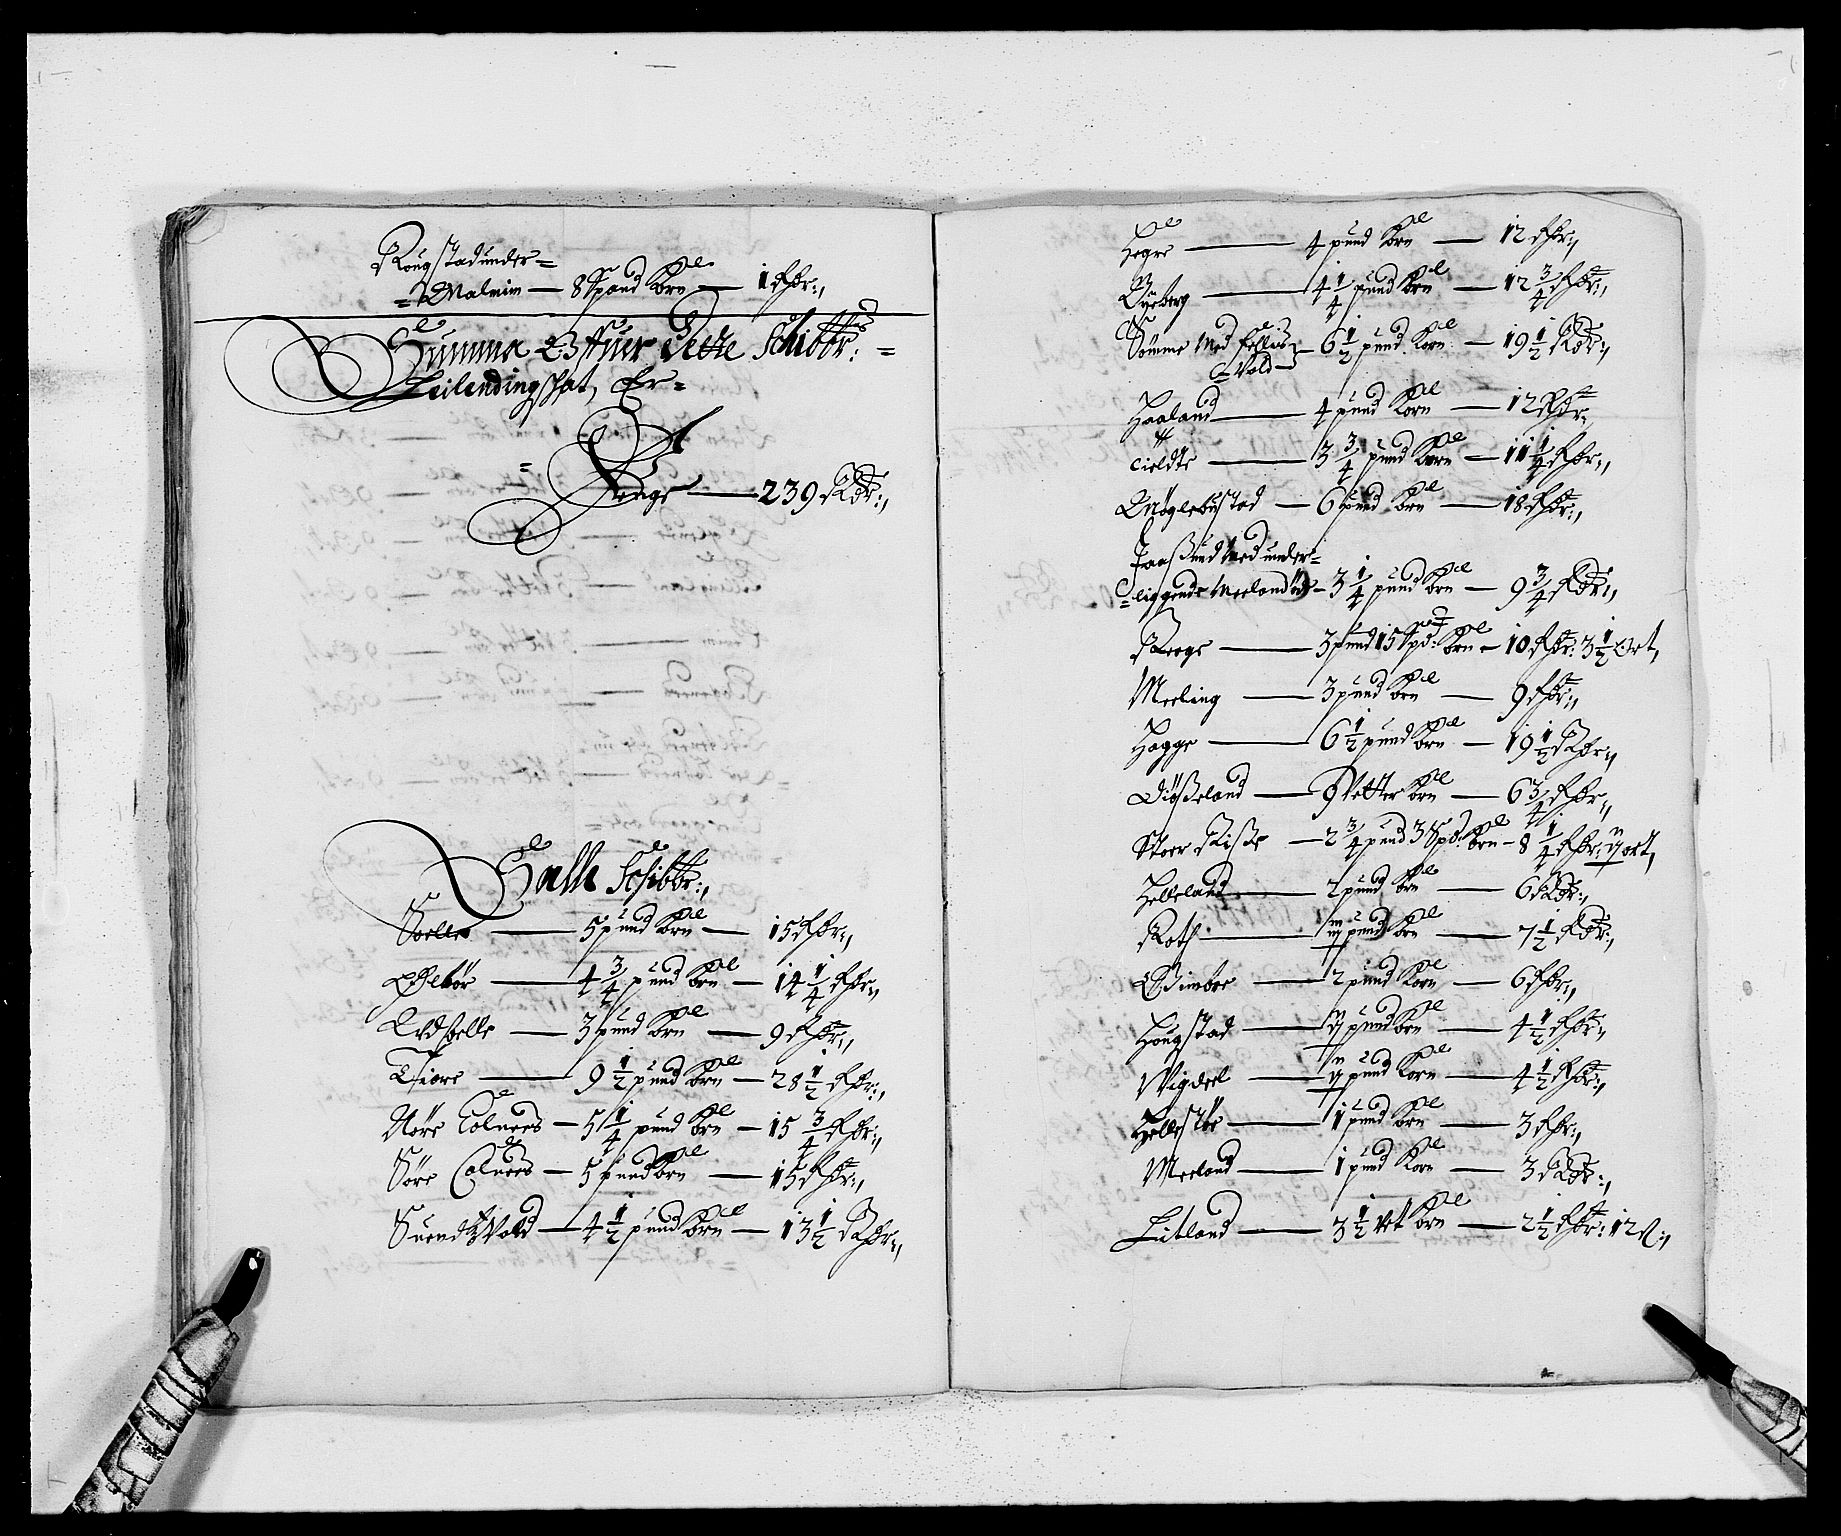 Rougstad under=
=Malmim — 8 Spand Korn — 1 Rdr:,
Summa Offuer dette Schibbr: =
Leilendingschat, Er=
= Penge — 239 Rdr:,
Salle Schibbr:,
Soelle — 5 pund Korn — 15 Rdr:,
Ølbør — 4 3/4 pund Korn — 14 1/4 Rdr:,
— 3 pund Korn — 9 Rdr:,
Tiore — 9 1/2 pund Korn — 28 1/2 Rdr:,
Nøre Colnees — 5 1/4 pund Korn — 15 3/4 Rdr:,
Søre Colnees — 5 pund Korn — 15 Rdr:,
Suend Wold — 4 1/2 pund Korn — 13 1/2 Rdr:,
Hegre — 4 pund Korn — 12 Rdr:,
Myeberg — 4 1/4 pund Korn — 12 3/4 Rdr:,
Sømme Med
Wold — 6 1/2 pund Korn — 19 1/2 Rdr:,
Haaland — 4 pund Korn — 12 Rdr:,
— 3 3/4 pund Korn — 11 1/4 Rdr:,
Møglebustad — 6 pund Korn — 18 Rdr:,
Jaasund Med under=
=liggende Meeland — 3 1/4 pund Korn — 9 3/4 Rdr:,
Reege — 3 pund 15 Spd: Korn — 10 Rdr: 3 1/2 Ort,
Meeling — 3 pund Korn — 9 Rdr:,
Hagge — 6 1/2 pund Korn — 19 1/2 Rdr:,
Diøseland — 9 Vetter Korn — 6 3/4 Rdr:,
Stoer Risse — 2 3/4 pund 3 Spd: Korn — 8 1/4 Rdr: ij ort,
Helleland — 2 pund Korn — 6 Rdr:,
Roth — pund Korn — 7 1/2 Rdr:,
Bimbre — 2 pund Korn — 6 Rdr:,
Hougstad — pund Korn — 4 1/2 Rdr:,
Wigdeel — pund Korn — 4 1/2 Rdr:,
Hellestøe — 1 pund Korn — 3 Rdr:,
Meeland — 1 pund Korn — 3 Rdr:,
Litland — 3 1/2 Vet Korn — 2 1/2 Rdr: 12 s:,